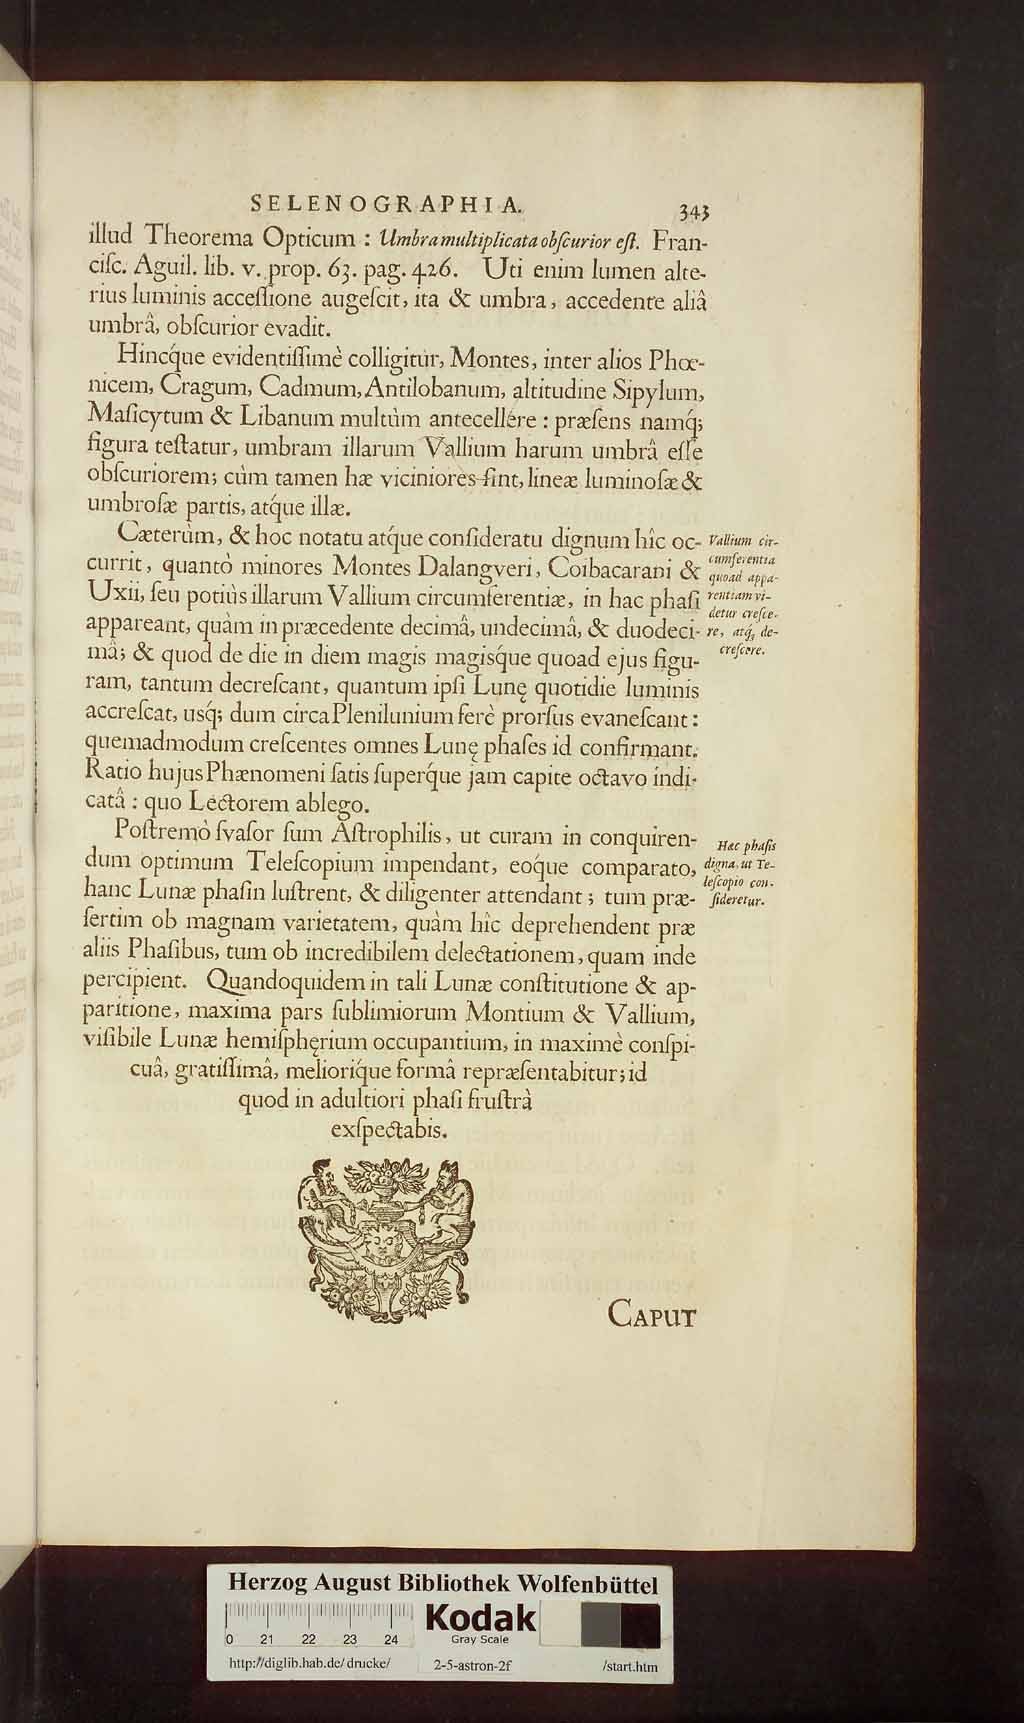 SELENOGRAPHIA.
343
illud Theorema Opticum : Umbra multiplicata obſcurior eſt. Fran-
ciſc. Aguil. lib. v. prop. 63. pag. 426. Uti enim lumen alte-
rius luminis acceſſione augeſcit, ita & umbra, accedente aliâ
umbrâ, obſcurior evadit.
Hincq́ue evidentiſſimè colligitur, Montes, inter alios Phœ-
nicem, Cragum, Cadmum, Antilobanum, altitudine Sipylum,
Maſicytum & Libanum multùm antecellére : præſens namq́;
figura teſtatur, umbram illarum Vallium harum umbrâ eſſe
obſcuriorem; cùm tamen hæ viciniores ſint, lineæ luminoſæ &
umbroſæ partis, atq́ue illæ.
Cæterùm, & hoc notatu atq́ue conſideratu dignum hîc oc-
currit, quantò minores Montes Dalangveri, Coibacarani &
Uxii, ſeu potiùs illarum Vallium circumferentiæ, in hac phaſi
appareant, quàm in præcedente decimâ, undecimâ, & duodeci-
mâ; & quod de die in diem magis magisq́ue quoad ejus figu-
ram, tantum decreſcant, quantum ipſi Lunę quotidie luminis
accreſcat, usq́; dum circa Plenilunium ferè prorſus evaneſcant :
quemadmodum creſcentes omnes Lunę phaſes id confirmant.
Ratio hujus Phænomeni ſatis ſuperq́ue jam capite octavo indi-
catâ : quo Lectorem ablego.
Vallium cir-
cumferentia
quoad appa-
rentiam vi-
detur creſce-
re, atq́; de-
creſcere.
Poſtremò ſvaſor ſum Aſtrophilis, ut curam in conquiren-
dum optimum Teleſcopium impendant, eoq́ue comparato,
hanc Lunæ phaſin luſtrent, & diligenter attendant ; tum præ-
ſertim ob magnam varietatem, quàm hîc deprehendent præ
aliis Phaſibus, tum ob incredibilem delectationem, quam inde
percipient. Quandoquidem in tali Lunæ conſtitutione & ap-
paritione, maxima pars ſublimiorum Montium & Vallium,
viſibile Lunæ hemiſphęrium occupantium, in maximè conſpi-
cuâ, gratiſſimâ, melioriq́ue formâ repræſentabitur; id
quod in adultiori phaſi fruſtrà
exſpectabis.
Hæc phaſis
digna, ut Te-
leſcopio con-
ſideretur.
CAPUT
Herzog August Bibliothek Wolfenbüttel
0 21 22 23 24
Kodak
Gray Scale
http://diglib.hab.de/drucke/ 2-5-astron-2f /start.htm